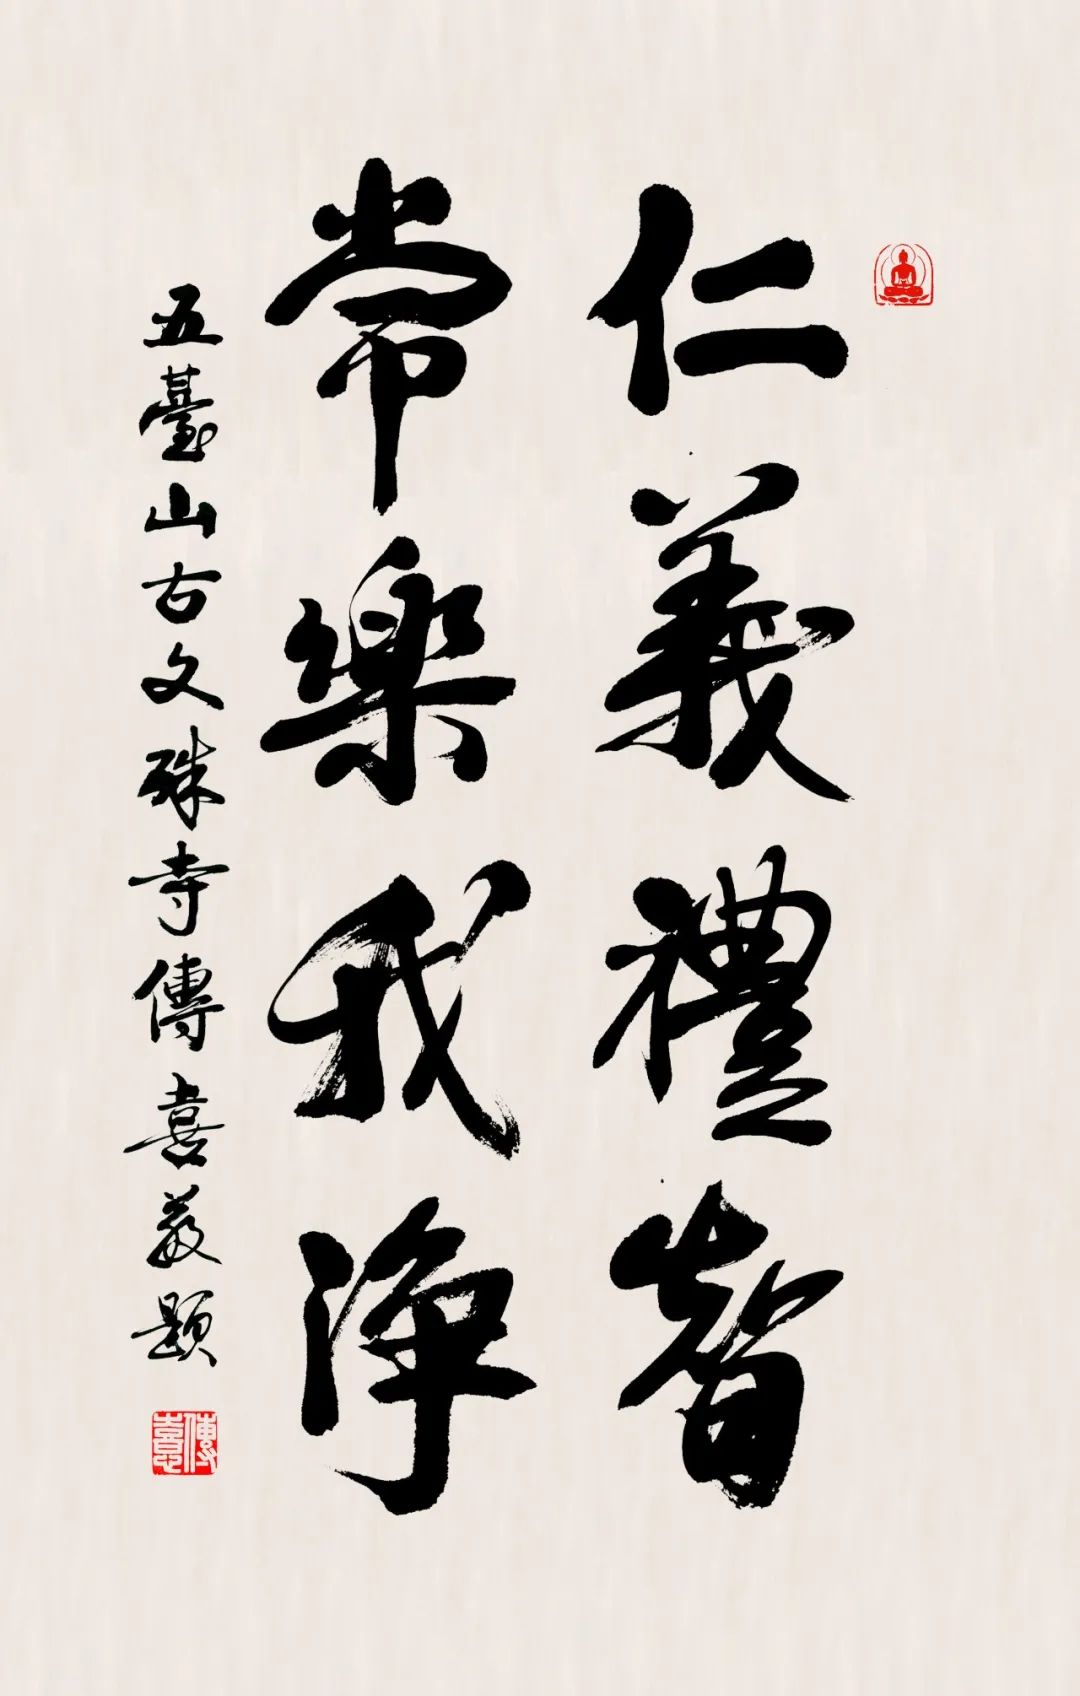 仁義禮智
常樂我淨
五臺山古文殊寺傳喜敬題
傳喜